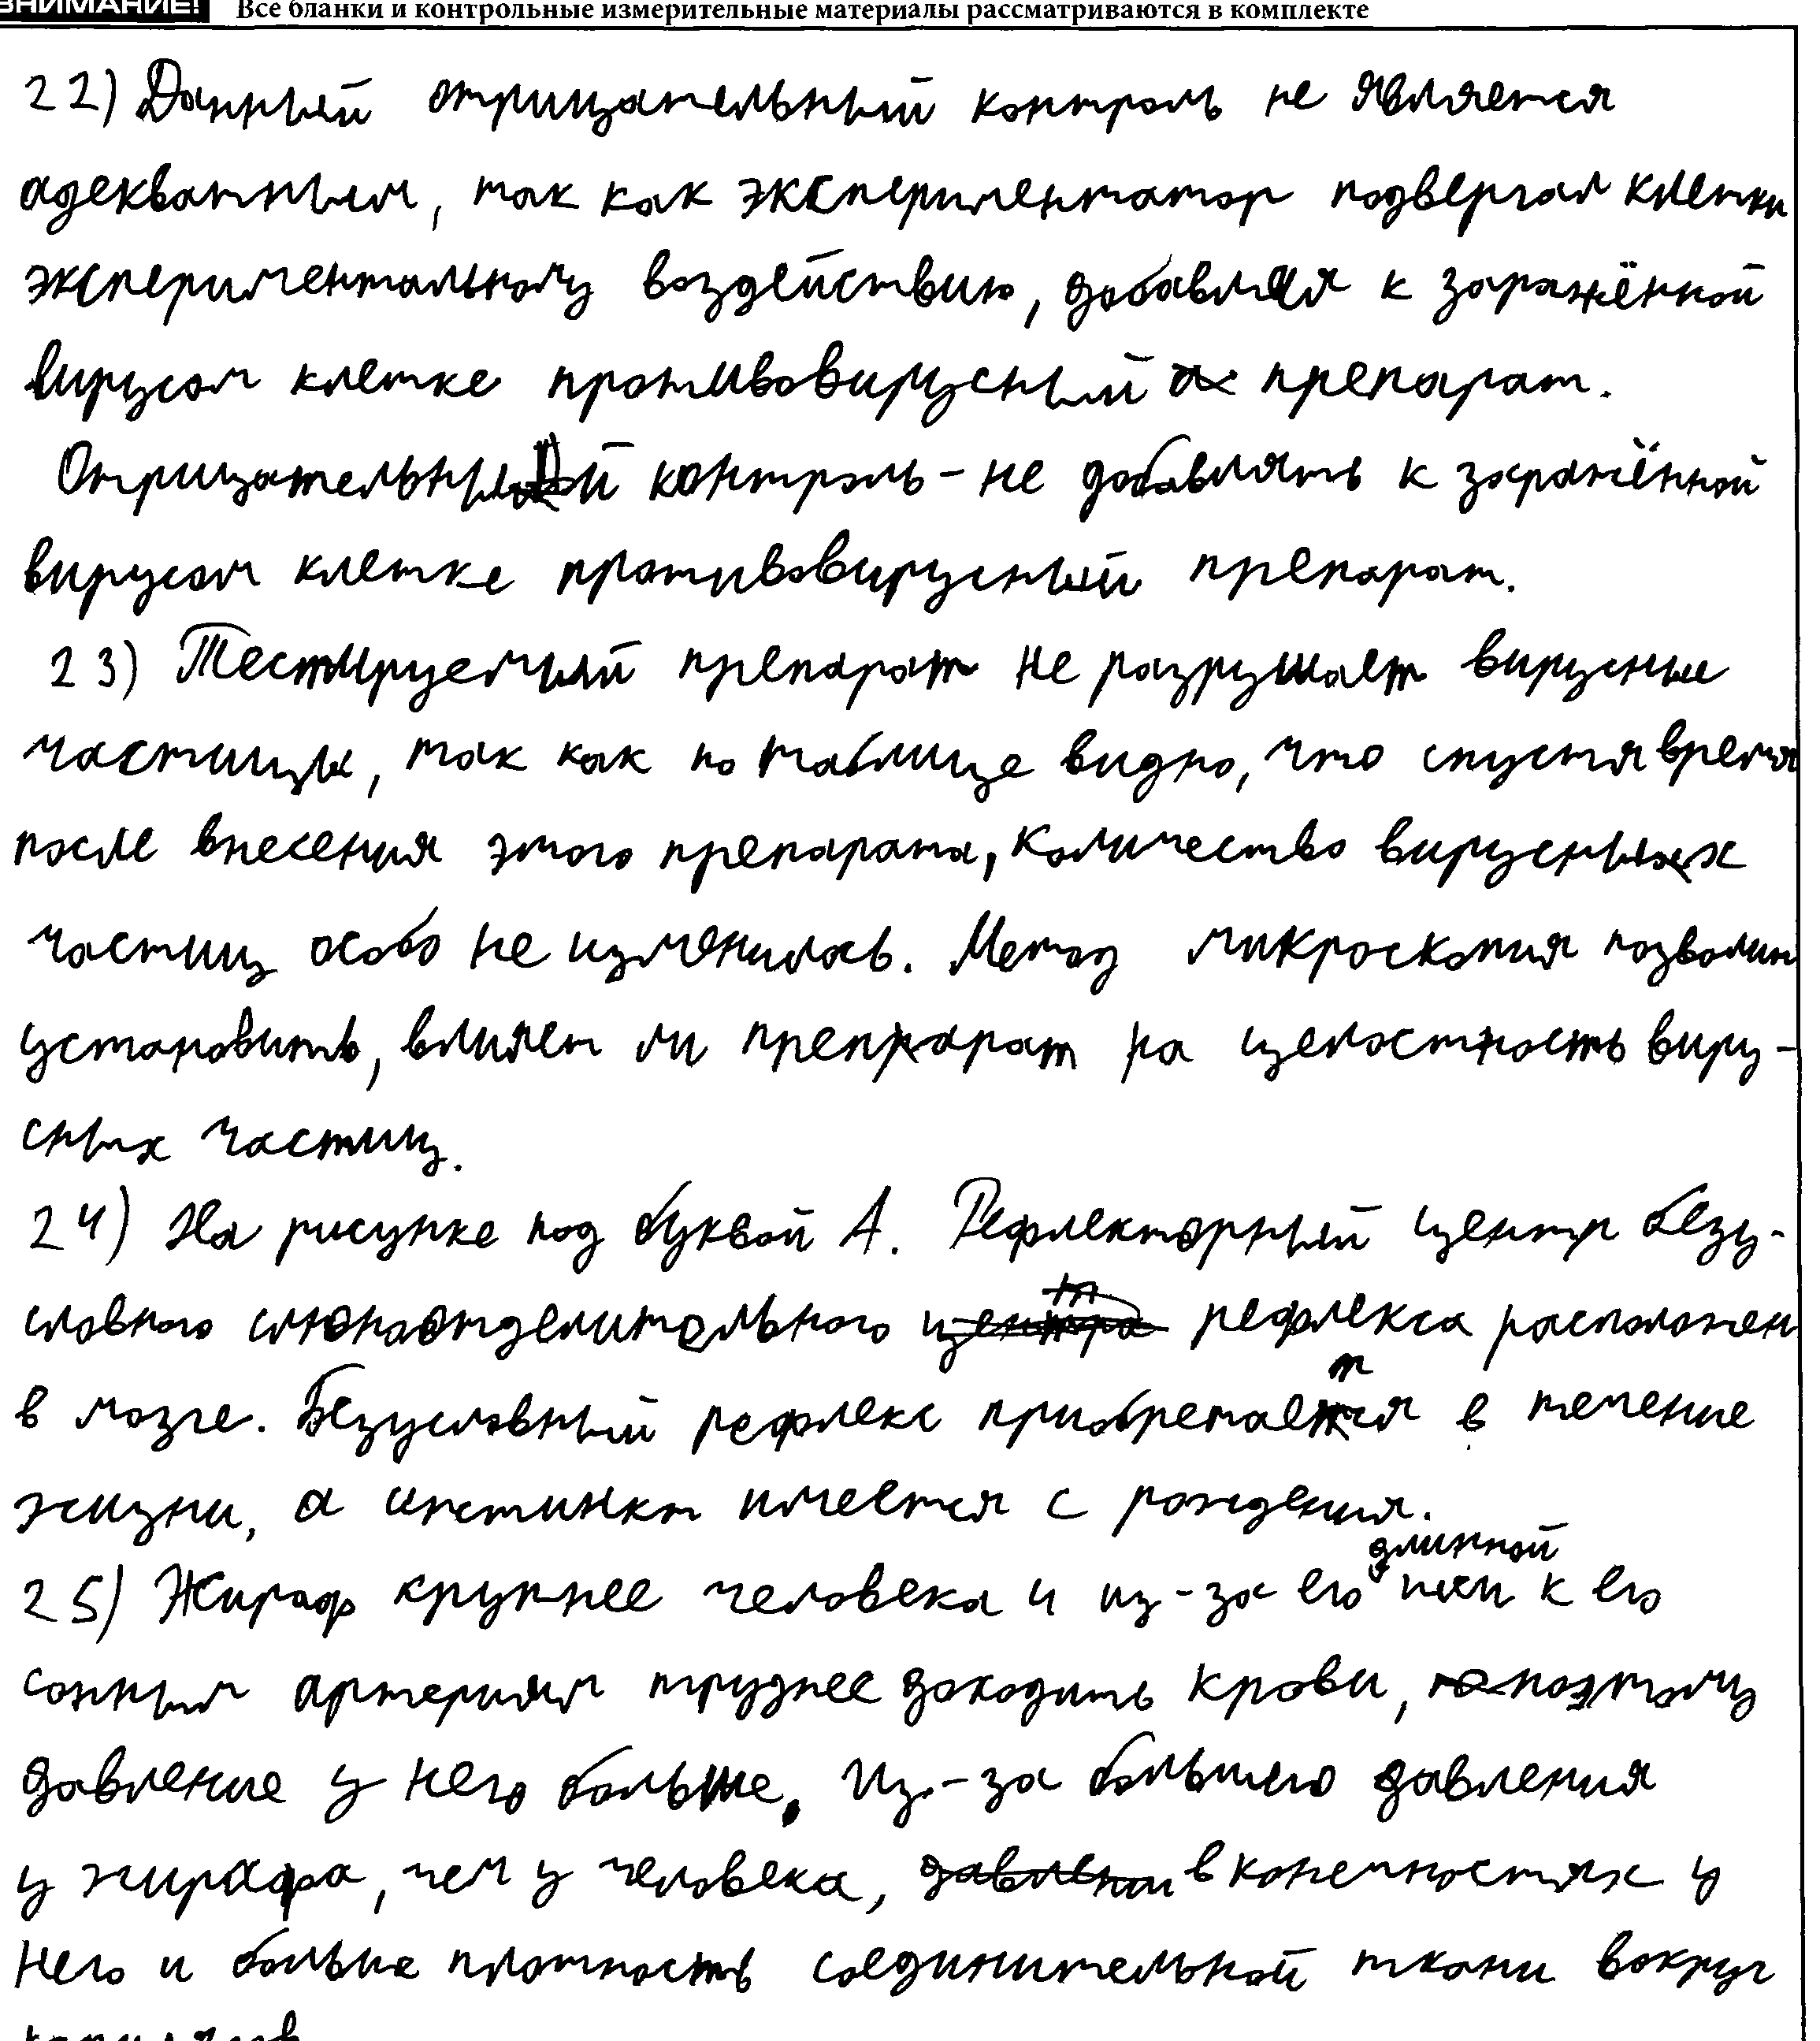 ВНИМАНИЕ! Все бланки и контрольные измерительные материалы рассматриваются в комплекте
22) Данный отрицательный контроль не является
адекватным, так как экспериментатор подвергал клетки
экспериментальному воздействию, добавляя к заражённой
вирусом клетке противовирусный препарат.
Отрицательный контроль - не добавлять к заражённой
вирусом клетке противовирусный препарат.
23) Тестируемый препарат не разрушает вирусные
частицы, так как по таблице видно, что спустя время
после внесения этого препарата, количество вирусных
частиц особо не изменилось. Метод микроскопия позволит
установить, влияет ли препарат на целостность виру-
сных частиц.
24) На рисунке под буквой А. Рефлекторный центр безу-
словного слюноотделительного рефлекса расположен
в мозге. Безусловный рефлекс приобретается в течение
жизни, а инстинкт имеется с рождения.
25) Жираф крупнее человека и из-за его длинной шеи к его
сонным артериям труднее доходить крови, поэтому
давление у него больше. Из-за большего давления
у жирафа, чем у человека, в конечностях у
него и больше плотность соединительной ткани вокруг